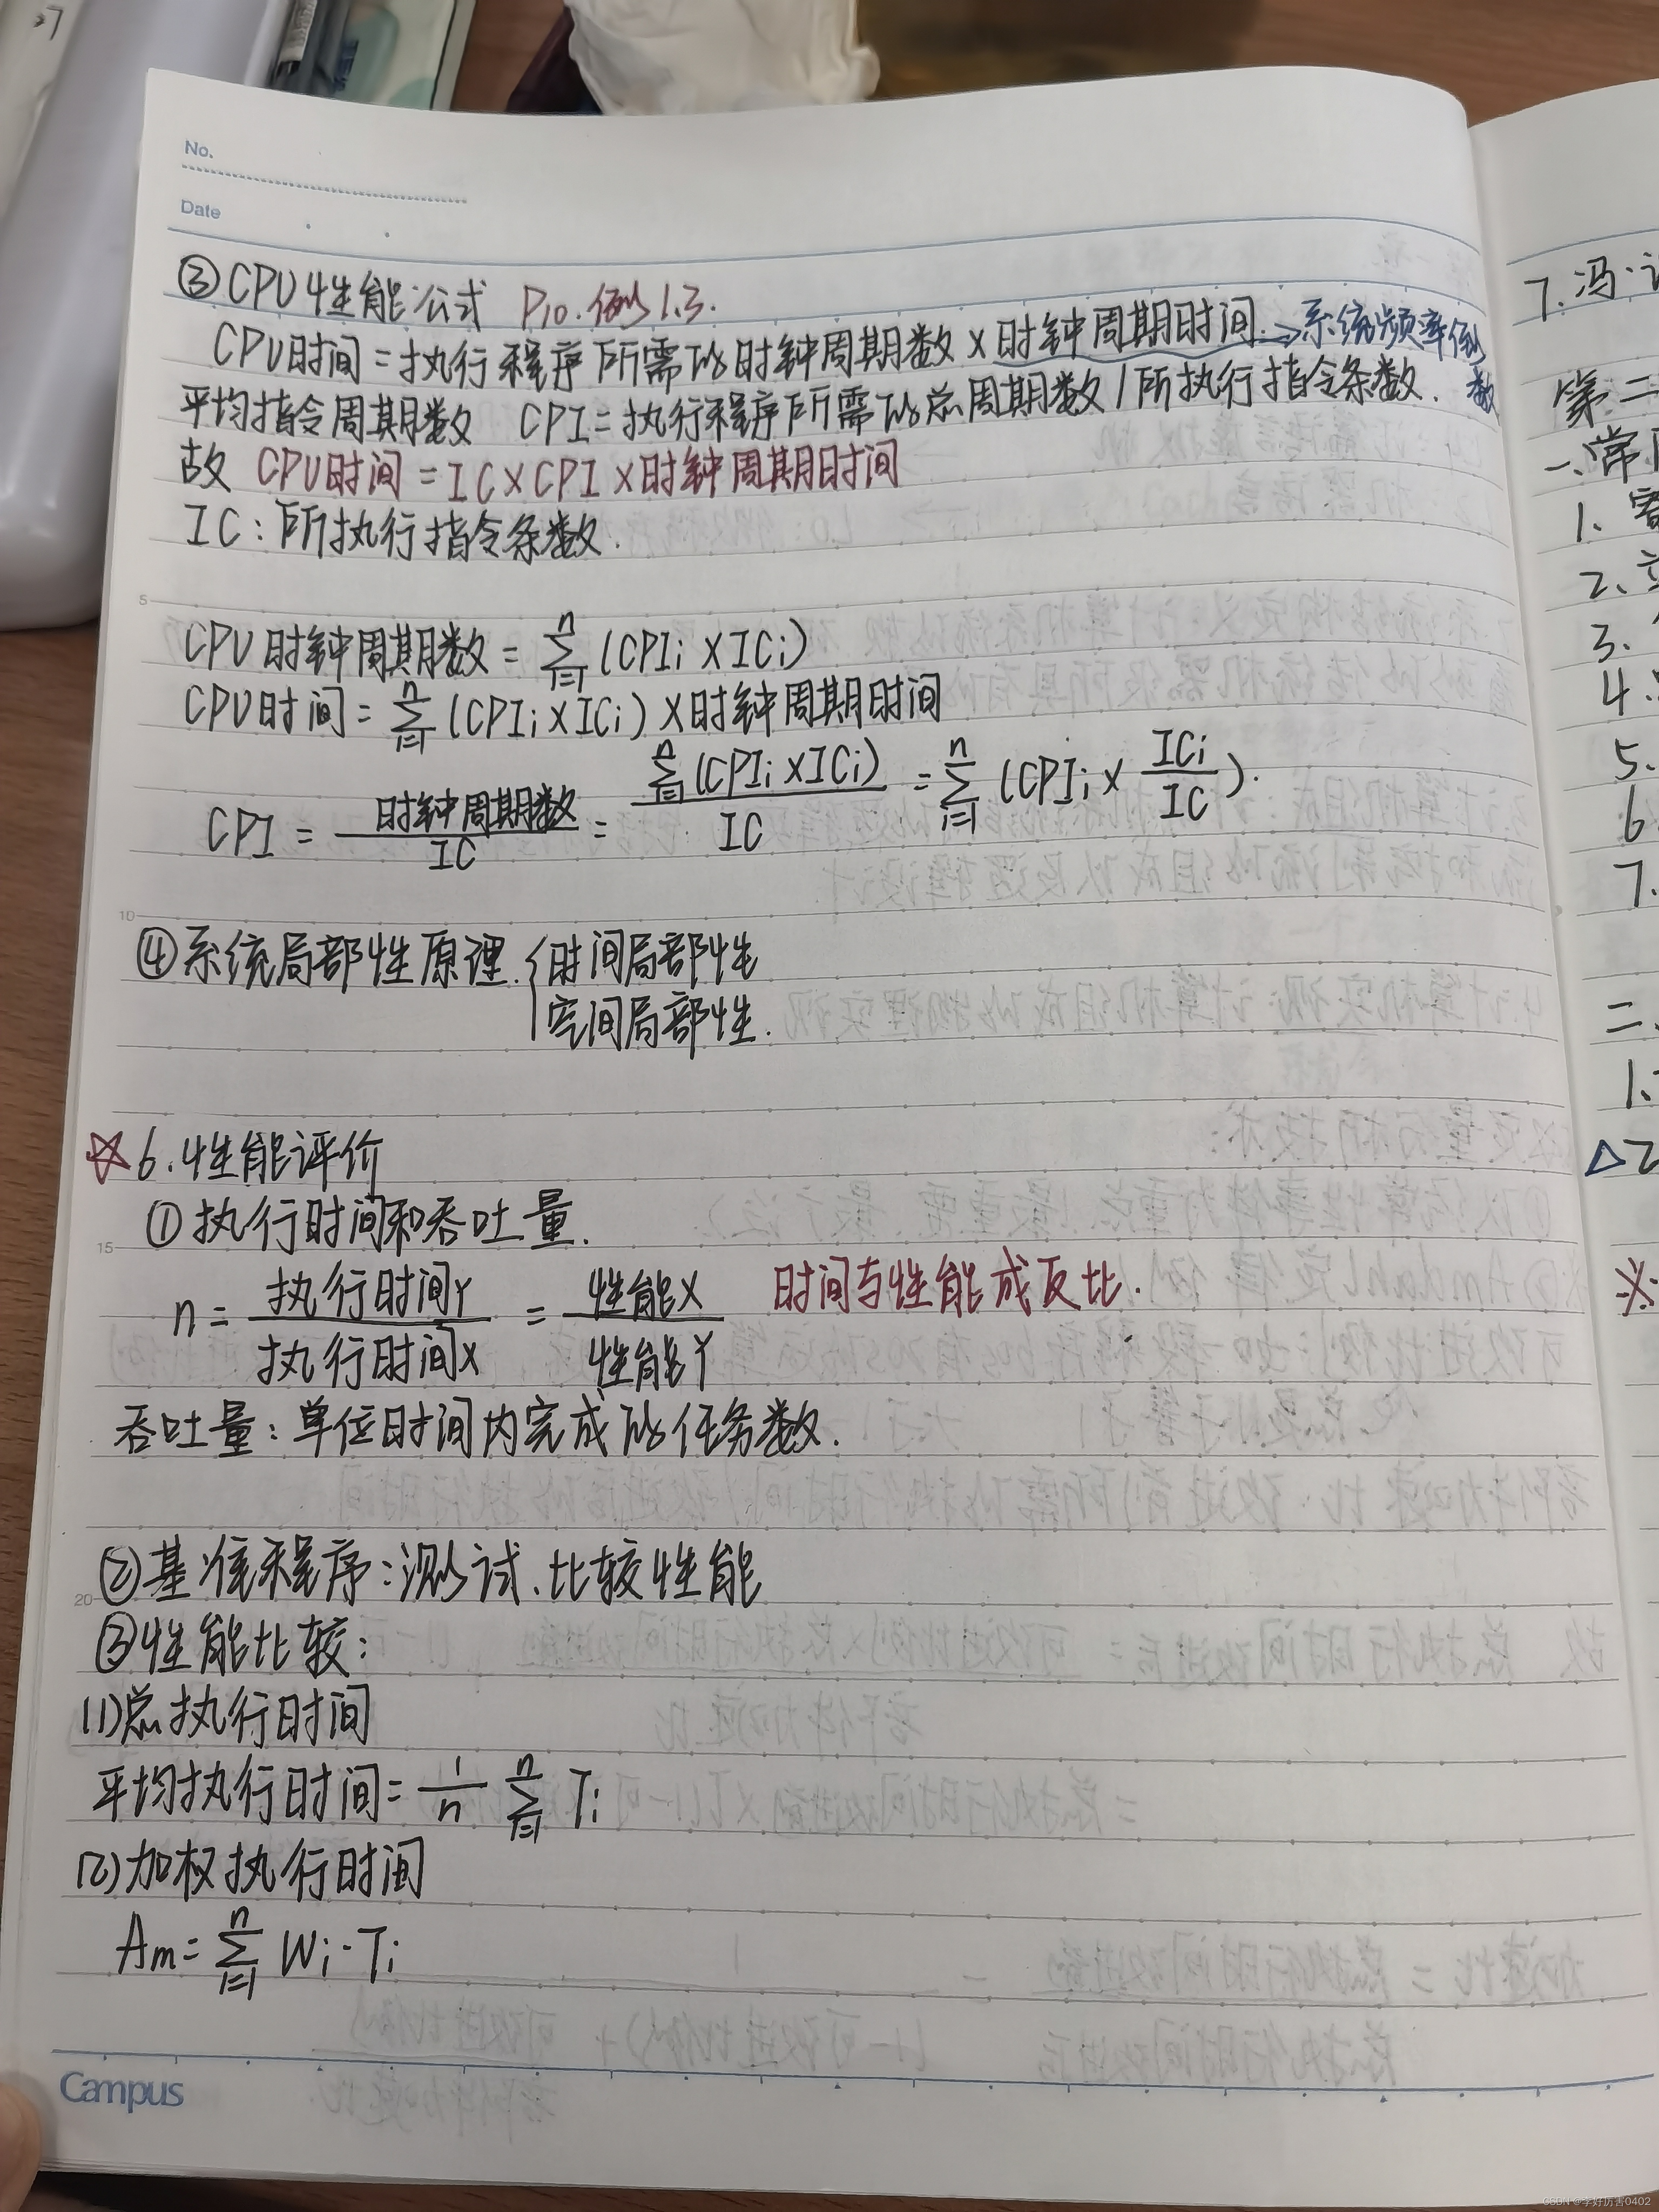 No.
Date
③CPU性能公式 P10.例1.3.
CPU时间=执行程序所需的时钟周期数×时钟周期时间→系统频率倒数
平均指令周期数 CPI=执行程序所需的总周期数/所执行指令条数.
故 CPU时间=IC×CPI×时钟周期时间
IC:所执行指令条数.
5
CPU时钟周期数=∑_{i=1}^{n}(CPIi×ICi)
CPU时间=∑_{i=1}^{n}(CPIi×ICi)×时钟周期时间
CPI=时钟周期数/IC=∑_{i=1}^{n}(CPIi×ICi)/IC=∑_{i=1}^{n}(CPIi×ICi/IC).
10
④系统局部性原理.{时间局部性
空间局部性.
☆6.性能评价
①执行时间和吞吐量.
15
n=执行时间Y/执行时间X=性能X/性能Y 时间与性能成反比.
吞吐量:单位时间内完成的任务数.
②基准程序:测试、比较性能
20
③性能比较:
(1)总执行时间
平均执行时间=1/n ∑_{i=1}^{n} Ti
(2)加权执行时间
Am=∑_{i=1}^{n} Wi·Ti
Campus
7.冯·
第二
一、常
1、
2、
3.
4.
5.
6.
7.
二、
1、
△2
※
CSDN @李好厉害0402